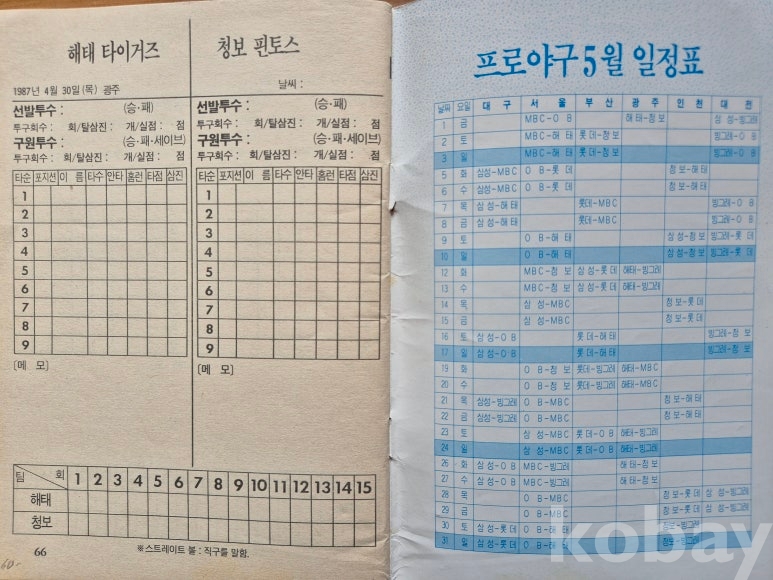 해태 타이거즈
1987년 4월 30일(목) 광주
선발투수 : (승·패)
투구회수 : 회/탈삼진 : 개/실점 : 점
구원투수 : (승·패·세이브)
투구회수 : 회/탈삼진 : 개/실점 : 점
타순 포지션 이 름 타수 안타 홈런 타점 삼진
1
2
3
4
5
6
7
8
9
[메 모]
청보 핀토스
날짜 :
선발투수 : (승·패)
투구회수 : 회/탈삼진 : 개/실점 : 점
구원투수 : (승·패·세이브)
투구회수 : 회/탈삼진 : 개/실점 : 점
타순 포지션 이 름 타수 안타 홈런 타점 삼진
1
2
3
4
5
6
7
8
9
[메 모]
팀 회 1 2 3 4 5 6 7 8 9 10 11 12 13 14 15
해태
청보
66 ※스트레이트 볼 : 직구를 말함.
60-
프로야구 5월 일정표
날짜 요일 대 구 서 울 부 산 광 주 인 천 대 전
1 금 MBC-O B 해태-청보 삼성-빙그레
2 토 MBC-해 태 롯데-청보 빙그레-O B
3 일 MBC-해 태 롯데-청보 빙그레-O B
5 화 삼성-MBC O B-롯 데 청보-해태
6 수 삼성-MBC O B-롯 데 청보-해태
7 목 삼성-해태 롯데-MBC 빙그레-O B
8 금 삼성-해태 롯데-MBC 빙그레-O B
9 토 O B-해 태 삼성-청보 빙그레-롯 데
10 일 O B-해 태 삼성-청보 빙그레-롯 데
12 화 MBC-청 보 삼성-롯 데 해태-빙그레
13 수 MBC-청 보 삼성-롯 데 해태-빙그레
14 목 삼 성-MBC 청보-롯데
15 금 삼 성-MBC 청보-롯데
16 토 삼성-O B 롯데-해태 빙그레-청보
17 일 삼성-O B 롯데-해태 빙그레-청보
19 화 O B-청 보 롯데-빙그레 해태-MBC
20 수 O B-청 보 롯데-빙그레 해태-MBC
21 목 삼성-빙그레 O B-MBC 청보-해태
22 금 삼성-빙그레 O B-MBC 청보-해태
23 토 삼 성-MBC 롯데-O B 해태-빙그레
24 일 삼 성-MBC 롯데-O B 해태-빙그레
26 화 삼성-롯데 MBC-빙그레 해태-청보
27 수 삼성-롯데 MBC-빙그레 해태-청보
28 목 O B-MBC 청보-롯데 삼성-빙그레
29 금 O B-MBC 청보-롯데 삼성-빙그레
30 토 삼성-롯데 O B-해 태 청보-빙그레
31 일 삼성-롯데 O B-해 태 청보-빙그레
kobay